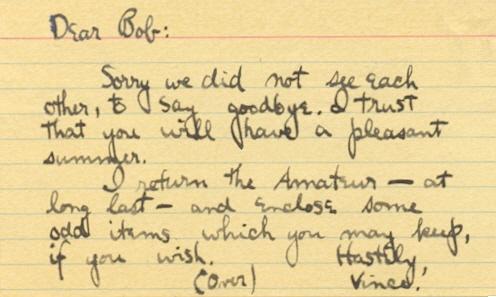 Dear Bob:
Sorry we did not see each
other, to say goodbye. I trust
that you will have a pleasant
summer.
I return the Amateur — at
long last — and enclose some
odd items which you may keep,
if you wish. Hastily,
(over) Vince.